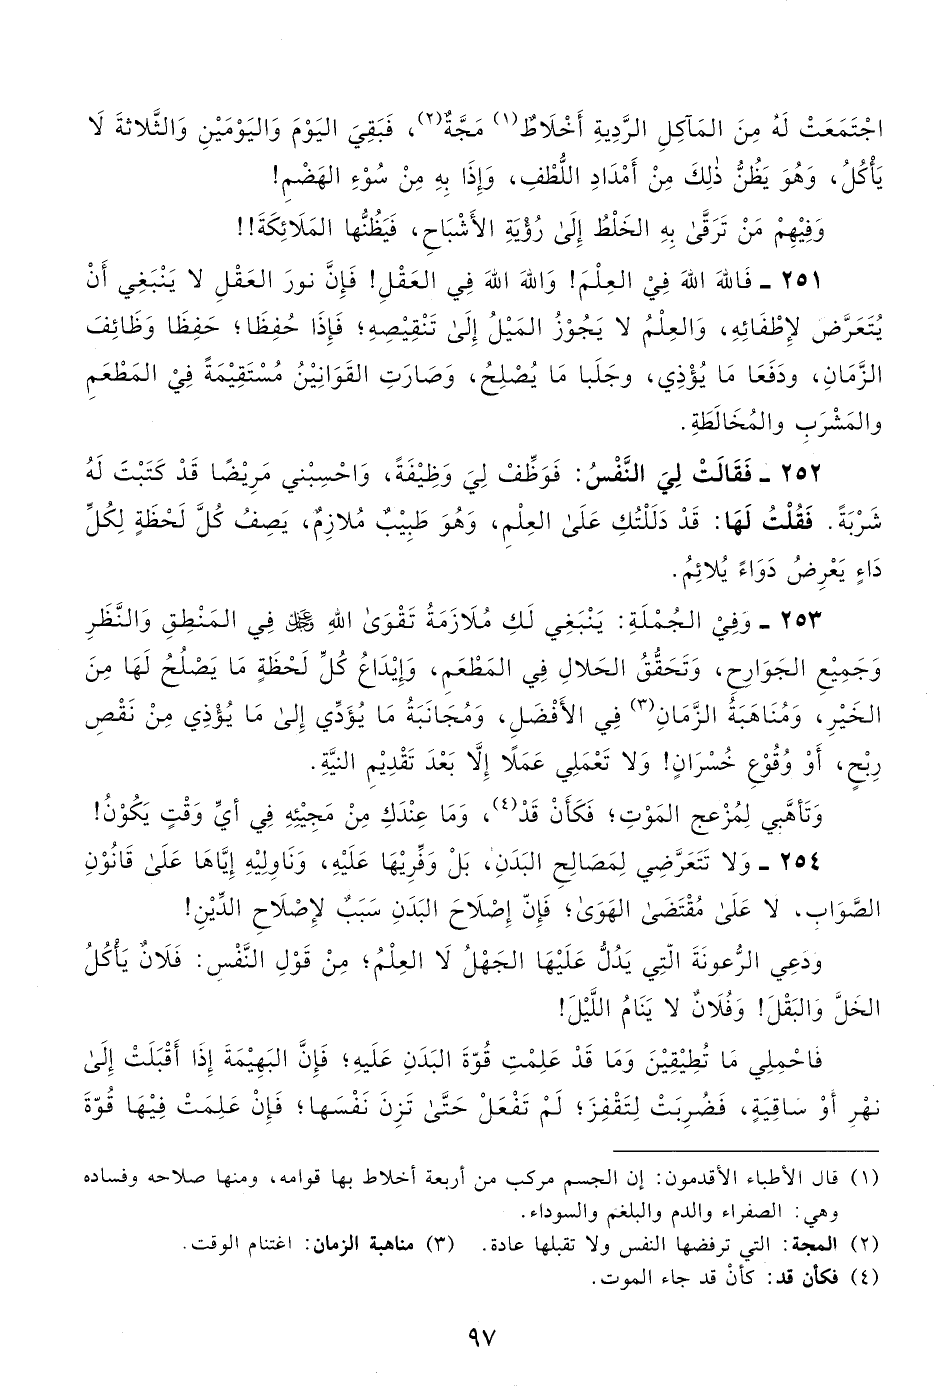 اجْتَمَعَتْ لَهُ مِنَ المَآكِلِ الرَّدِيةِ أَخْلَاطٌ(١) مَجَّةٌ(٢)، فَبَقِيَ اليَوْمَ وَاليَوْمَيْنِ وَالثَّلاثةَ لَا
يَأْكُلُ، وَهُوَ يَظُنُّ ذٰلِكَ مِنْ أَمْدَادِ اللُّطْفِ، وَإِذَا بِهِ مِنْ سُوْءِ الهَضْمِ!
وَفِيْهِمْ مَنْ تَرَقَّىٰ بِهِ الخَلْطُ إِلَىٰ رُؤْيَةِ الأَشْبَاحِ، فَيَظُنُّها المَلَائِكَةَ!!
٢٥١ ـ فَاللهَ اللهَ فِيْ العِلْمِ! وَاللهَ اللهَ فِي العَقْلِ! فَإِنَّ نورَ العَقْلِ لا يَنْبَغِي أَنْ
يُتَعَرَّضَ لإِطْفَائِهِ، وَالعِلْمُ لا يَجُوْزُ المَيْلُ إِلَىٰ تَنْقِيْصِهِ؛ فَإِذَا حُفِظَا؛ حَفِظَا وَظَائِفَ
الزَّمَانِ، ودَفَعَا مَا يُؤْذِي، وجَلَبا مَا يُصْلِحُ، وَصَارَتِ القَوَانِيْنُ مُسْتَقِيْمَةً فِيْ المَطْعَمِ
والمَشْرَبِ والمُخَالَطَةِ.
٢٥٢ ـ فَقَالَتْ لِيَ النَّفْسُ: فَوَظِّفْ لِيَ وَظِيْفَةً، وَاحْسِبْني مَرِيْضًا قَدْ كَتَبْتَ لَهُ
شَرْبَةً. فَقُلْتُ لَهَا: قَدْ دَلَلْتُكِ عَلَىٰ العِلْمِ، وَهُوَ طَبِيْبٌ مُلازِمٌ، يَصِفُ كُلَّ لَحْظَةٍ لِكُلِّ
دَاءٍ يَعْرِضُ دَوَاءً يُلائِمُ.
٢٥٣ ـ وَفِيْ الجُمْلَةِ: يَنْبَغِي لَكِ مُلَازَمَةُ تَقْوَىٰ اللهِ ﷻ فِي المَنْطِقِ وَالنَّظَرِ
وَجَمِيْعِ الجَوَارِحِ، وَتَحَقُّقُ الحَلالِ فِي المَطْعَمِ، وَإِيْدَاعُ كُلِّ لَحْظَةٍ مَا يَصْلُحُ لَهَا مِنَ
الخَيْرِ، وَمُنَاهَبَةُ الزَّمَانِ(٣) فِي الأَفْضَلِ، وَمُجَانَبَةُ مَا يُؤَدِّي إِلىٰ مَا يُؤْذِي مِنْ نَقْصِ
رِبْحٍ، أَوْ وُقُوْعِ خُسْرَانٍ! وَلا تَعْمَلِي عَمَلًا إِلَّا بَعْدَ تَقْدِيْمِ النيَّةِ.
وَتأَهَّبي لِمُزْعِجِ المَوْتِ؛ فَكَأَنْ قَدْ(٤)، وَمَا عِنْدَكِ مِنْ مَجِيْئِهِ فِي أيِّ وَقْتٍ يَكُوْنُ!
٢٥٤ ـ وَلا تَتَعَرَّضِي لِمَصَالحِ البَدَنِ، بَلْ وَفِّرِيْهَا عَلَيْهِ، وَنَاوِلِيْهِ إِيَّاهَا عَلَىٰ قَانُوْنِ
الصَّوَابِ، لا عَلَىٰ مُقْتَضَىٰ الهَوَىٰ؛ فَإِنّ إِصْلَاحَ البَدَنِ سَبَبٌ لإِصْلَاحِ الدِّيْنِ!
وَدَعِي الرُّعونَةَ الّتِي يَدُلُّ عَلَيْهَا الجَهْلُ لَا العِلْمُ؛ مِنْ قَوْلِ النَّفْسِ: فَلَانٌ يَأْكُلُ
الخَلَّ وَالبَقْلَ! وَفُلَانٌ لا يَنَامُ اللَّيْلَ!
فَاحْمِلي مَا تُطِيْقِيْنَ وَمَا قَدْ عَلِمْتِ قُوّةَ البَدَنِ عَلَيهِ؛ فَإِنَّ البَهِيْمَةَ إِذَا أَقْبَلَتْ إِلَىٰ
نهْرٍ أَوْ سَاقِيَةٍ، فَضُرِبَتْ لِتَقْفِزَ؛ لَمْ تَفْعَلْ حَتَّىٰ تَزِنَ نَفْسَها؛ فَإِنْ عَلِمَتْ فِيْهَا قُوّةَ
(١) قال الأطباء الأقدمون: إن الجسم مركب من أربعة أخلاط بها قوامه، ومنها صلاحه وفساده
وهي: الصفراء والدم والبلغم والسوداء.
(٢) المجة: التي ترفضها النفس ولا تقبلها عادة. (٣) مناهبة الزمان: اغتنام الوقت.
(٤) فكأن قد: كأنْ قد جاء الموت.
٩٧